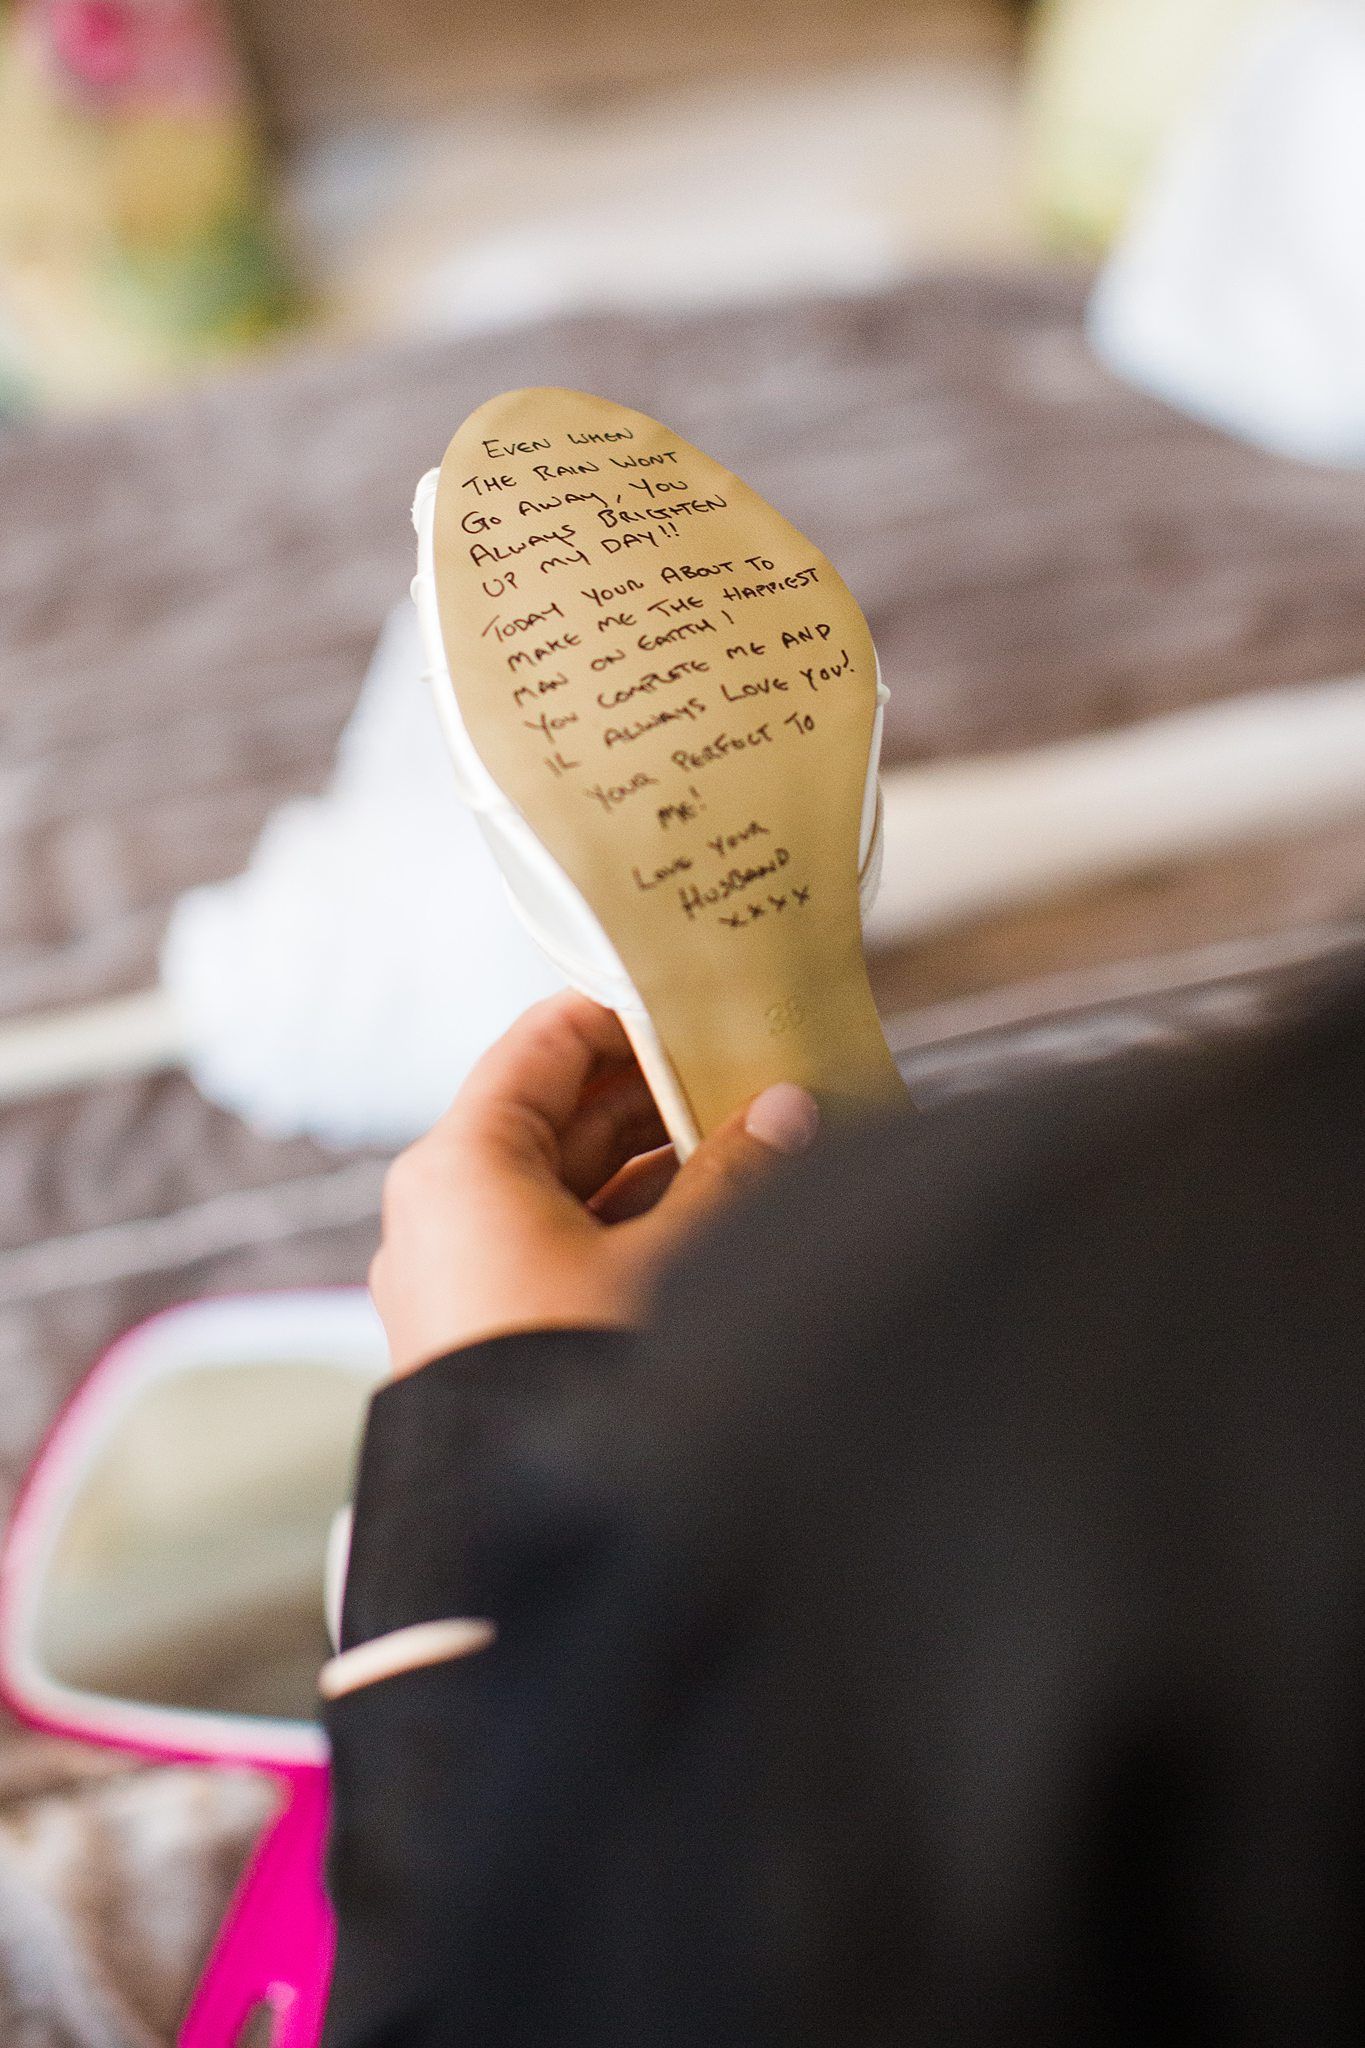 EVEN WHEN
THE RAIN WONT
GO AWAY, YOU
ALWAYS BRIGHTEN
UP MY DAY!!
TODAY YOUR ABOUT TO
MAKE ME THE HAPPIEST
MAN ON EARTH!
YOU COMPLETE ME AND
IL ALWAYS LOVE YOU!
YOUR PERFECT TO
ME!
LOVE YOUR
HUSBAND
xxxx